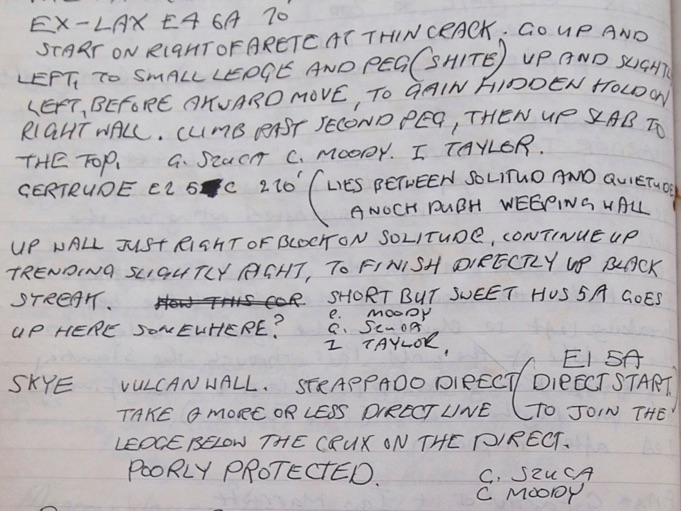 EX-LAX E4 6A 70'
START ON RIGHT OF ARETE AT THIN CRACK. GO UP AND
LEFT, TO SMALL LEDGE AND PEG (SHITE) UP AND SLIGHTLY
LEFT, BEFORE AKWARD MOVE, TO GAIN HIDDEN HOLD ON
RIGHT WALL. CLIMB PAST SECOND PEG, THEN UP SLAB TO
THE TOP. G. SZUCA C. MOODY. I TAYLOR.
GERTRUDE E2 5C 210' (LIES BETWEEN SOLITUD AND QUIETUDE
ANOCH DUBH WEEPING WALL
UP WALL JUST RIGHT OF BLOCK ON SOLITUDE, CONTINUE UP
TRENDING SLIGHTLY RIGHT, TO FINISH DIRECTLY UP BLACK
STREAK. SHORT BUT SWEET HVS 5A GOES
UP HERE SOMEWHERE? C. MOODY
G. SZUCA
I TAYLOR.
E1 5A
SKYE VULCAN WALL. STRAPPADO DIRECT (DIRECT START.
TAKE A MORE OR LESS DIRECT LINE TO JOIN THE
LEDGE BELOW THE CRUX ON THE DIRECT.
POORLY PROTECTED. G. SZUCA
C MOODY